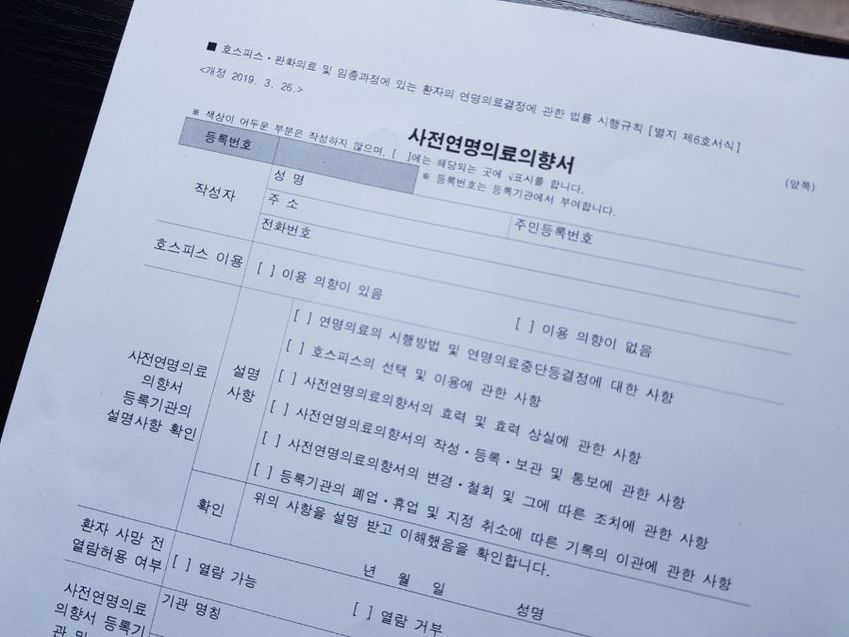 ■ 호스피스ㆍ완화의료 및 임종과정에 있는 환자의 연명의료결정에 관한 법률 시행규칙 [별지 제6호서식]
<개정 2019. 3. 26.>
사전연명의료의향서
※ 색상이 어두운 부분은 작성하지 않으며, [ ]에는 해당되는 곳에 √표시를 합니다.
(앞쪽)
등록번호
※ 등록번호는 등록기관에서 부여합니다.
작성자
성 명
주민등록번호
주 소
전화번호
호스피스 이용
[ ] 이용 의향이 있음
[ ] 이용 의향이 없음
사전연명의료
의향서
등록기관의
설명사항 확인
설명
사항
[ ] 연명의료의 시행방법 및 연명의료중단등결정에 대한 사항
[ ] 호스피스의 선택 및 이용에 관한 사항
[ ] 사전연명의료의향서의 효력 및 효력 상실에 관한 사항
[ ] 사전연명의료의향서의 작성ㆍ등록ㆍ보관 및 통보에 관한 사항
[ ] 사전연명의료의향서의 변경ㆍ철회 및 그에 따른 조치에 관한 사항
[ ] 등록기관의 폐업ㆍ휴업 및 지정 취소에 따른 기록의 이관에 관한 사항
확인
위의 사항을 설명 받고 이해했음을 확인합니다.
년 월 일 성명
환자 사망 전
열람허용 여부
[ ] 열람 가능
[ ] 열람 거부
사전연명의료
의향서 등록기
관 및
기관 명칭